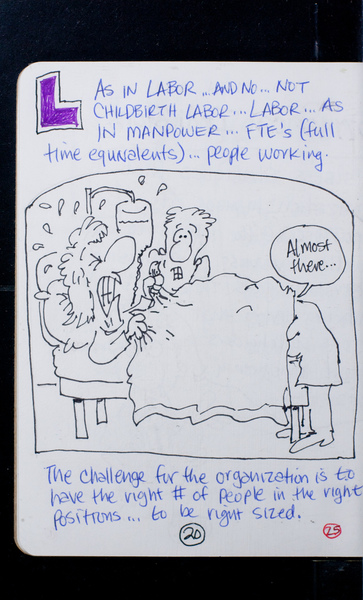 L AS IN LABOR... AND NO... NOT
CHILDBIRTH LABOR... LABOR... AS
IN MANPOWER... FTE's (full
time equivalents)... people working.
Almost
there...
The challenge for the organization is to
have the right # of people in the right
positions... to be right sized.
20
25